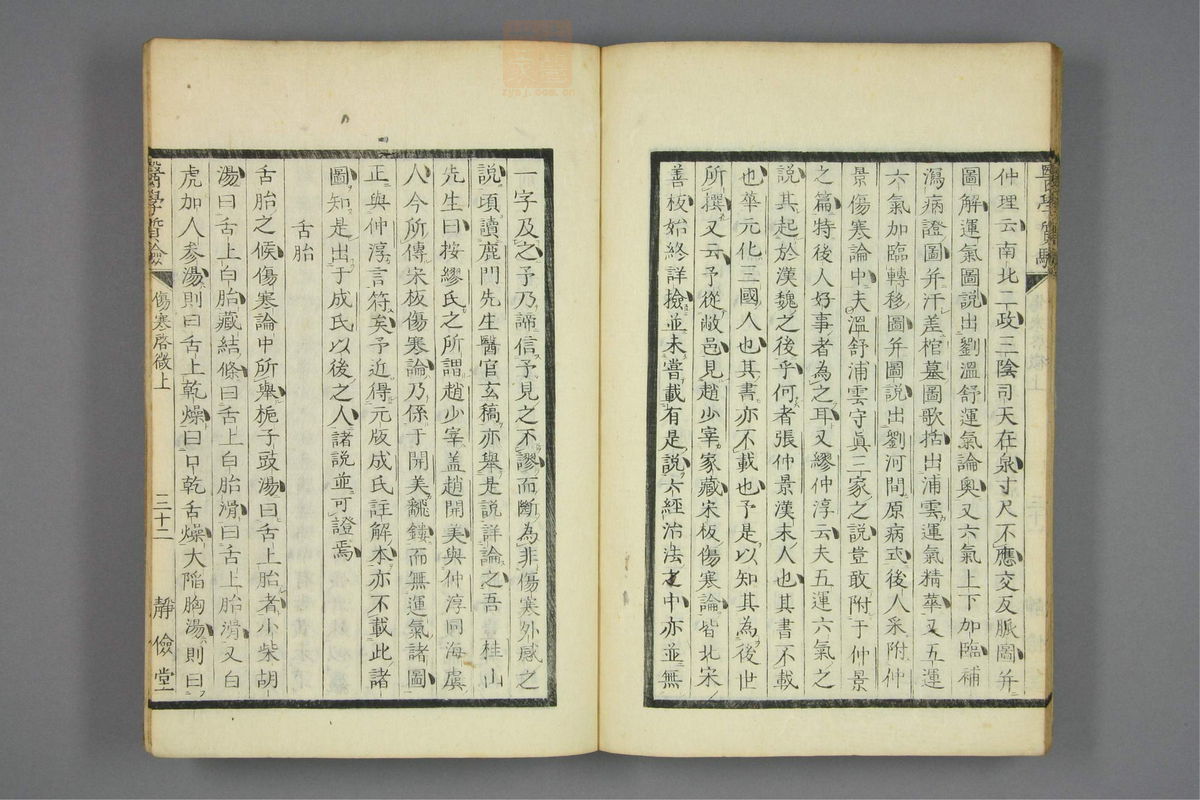 仲理云南北二政三陰司天在泉寸尺不應交反脈圖并
圖解運氣圖說出劉溫舒運氣論奧又六氣上下加臨補
瀉病證圖并汗差棺墓圖歌括出浦雲運氣精華又五運
六氣加臨轉移圖并圖說出劉河間原病式後人采附仲
景傷寒論中夫溫舒浦雲守眞三家之說豈敢附于仲景
之篇特後人好事者為之耳又繆仲淳云夫五運六氣之
說其起於漢魏之後乎何者張仲景漢末人也其書不載
也華元化三國人也其書亦不載也予是以知其為後世
所撰又云予從敝邑見趙少宰家藏宋板傷寒論皆北宋
善板始終詳檢並未嘗載有是說六經治法之中亦並無
一字及之予乃諦信予見之不謬而斷為非傷寒外感之
說頃讀鹿門先生醫官玄稿亦舉是說詳論之吾桂山
先生曰按繆氏之所謂趙少宰蓋趙開美與仲淳同海虞
人今所傳宋板傷寒論乃係于開美翻鏤而無運氣諸圖
正與仲淳言符矣予近得元版成氏註解本亦不載此諸
圖知是出于成氏以後之人諸說並可證焉
舌胎
舌胎之候傷寒論中所舉梔子豉湯曰舌上胎者小柴胡
湯曰舌上白胎藏結條曰舌上白胎滑曰舌上胎滑又白
虎加人參湯則曰舌上乾燥曰口乾舌燥大陷胸湯則曰
醫學質驗
傷寒啓微上
三十二
靜儉堂